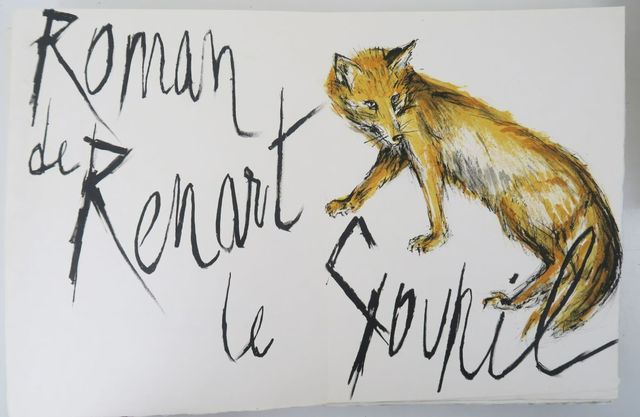 Roman
de Renart
le Goupil